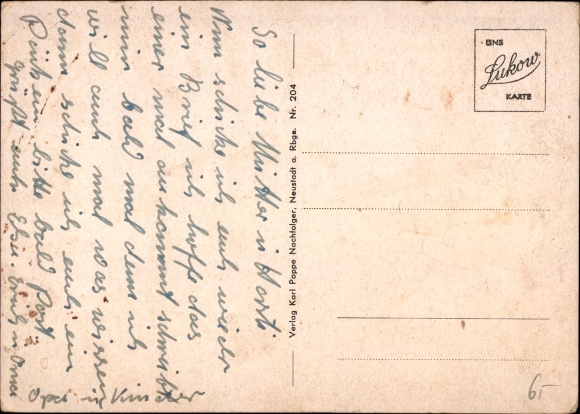 So liebe Mutter u Horst
Nun schicke ich euch wieder
ein Brief ich hoffe das
einer mal ankommt schreibt
mir bald mal denn ich
will auch mal was wissen
dann schicke ich euch ein
bitte bald Post
grüßt euch Else. u Oma
Opa u Kinder
Verlag Karl Poppe Nachfolger, Neustadt a. Rbge. Nr. 204
EINE
Lukow
KARTE
6,-